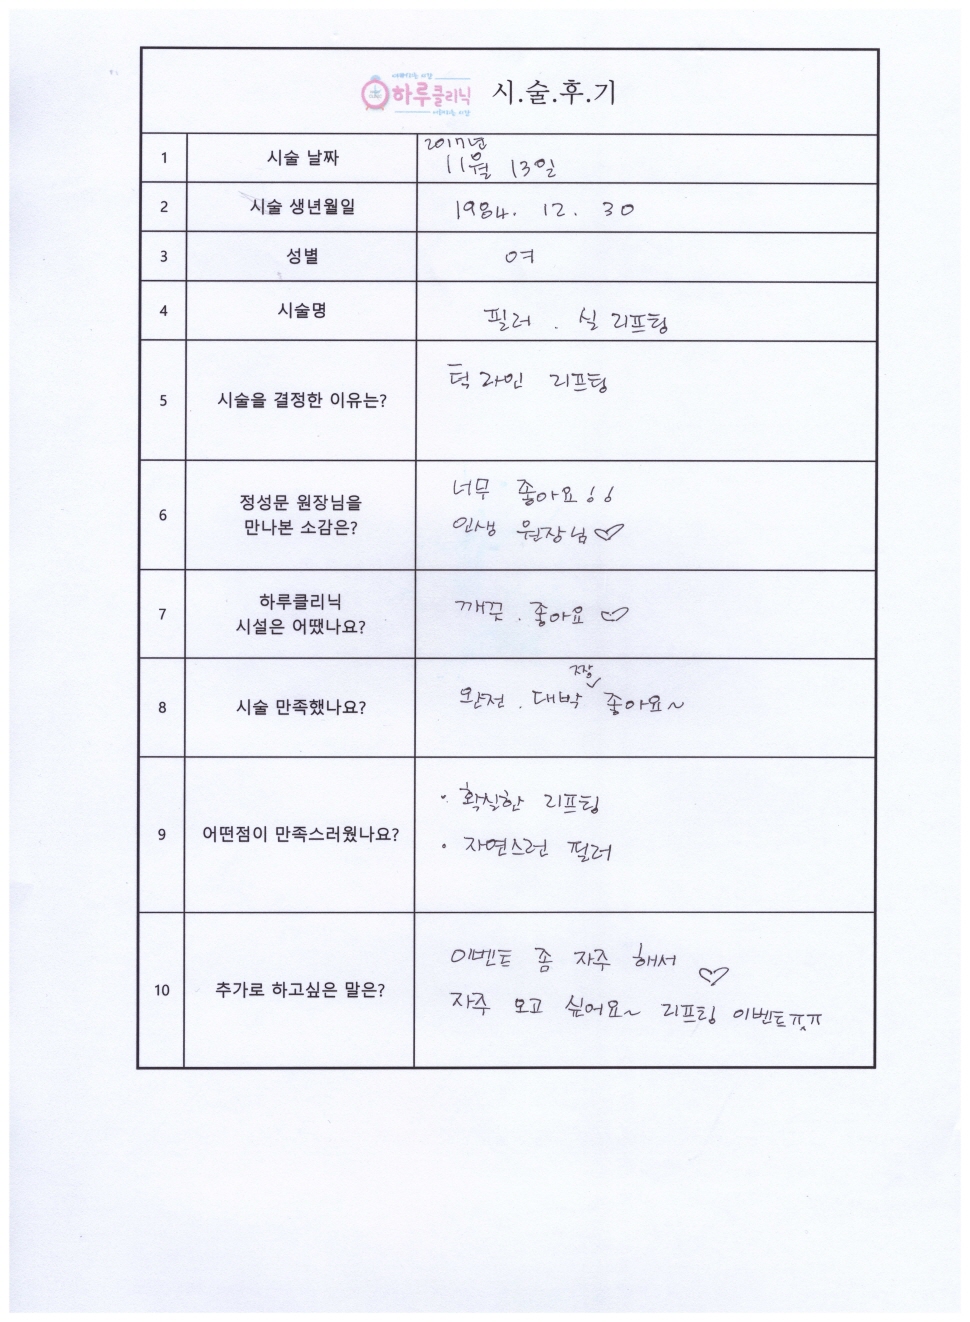 하루클리닉 시.술.후.기
1 시술 날짜 2017년
11월 13일
2 시술 생년월일 1984. 12. 30
3 성별 여
4 시술명 필러 . 실 리프팅
5 시술을 결정한 이유는? 턱라인 리프팅
6 정성문 원장님을
만나본 소감은?
너무 좋아요!!
인생 원장님♡
7 하루클리닉
시설은 어땠나요?
깨끗. 좋아요 ♡
8 시술 만족했나요? 완전. 대박 짱 좋아요~
9 어떤점이 만족스러웠나요?
· 확실한 리프팅
· 자연스런 필러
10 추가로 하고싶은 말은?
이벤트 좀 자주 해서 ♡
자주 오고 싶어요~ 리프팅 이벤트ㅠㅅㅠ